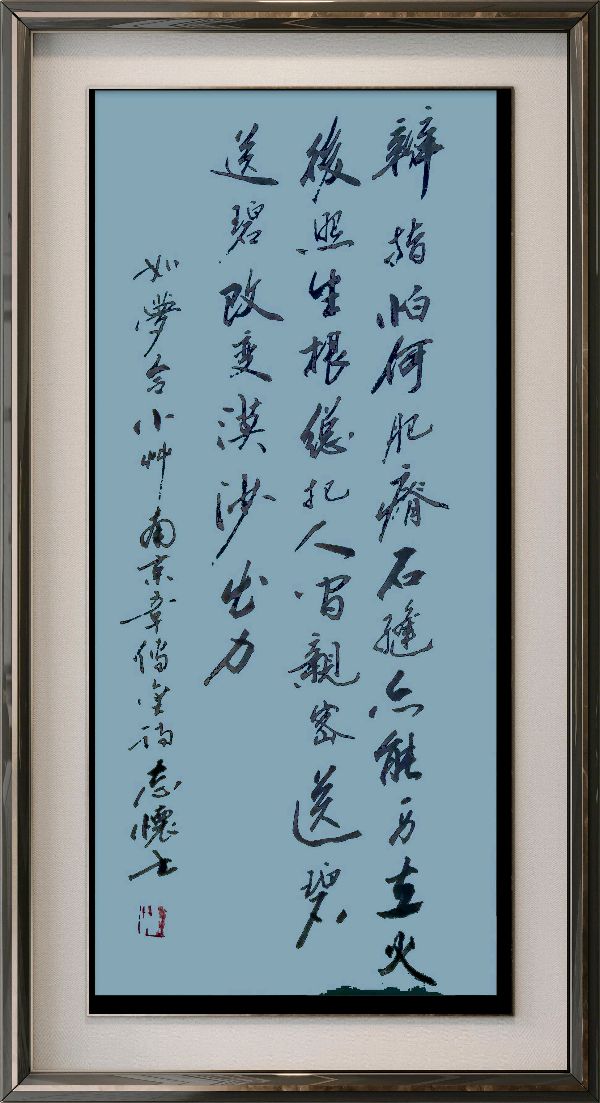 指怕何肥瘠石縫亦能立火
後照生根總把人間親密送碧
送碧改變漠沙出力
如夢令小艸南京章詞志懷書